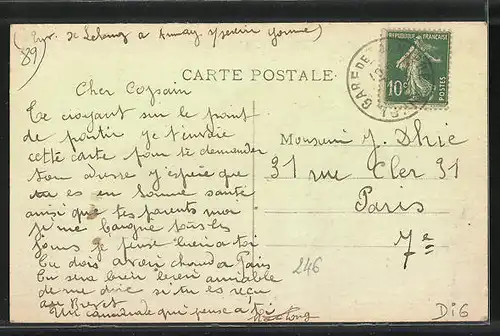 (Exp. de Lelong a Annay s/Serein Yonne)
89)
RÉPUBLIQUE FRANÇAISE
10c
POSTES
GARE DE
CARTE POSTALE
Cher Copain
Te croyant sur le point
de partir je t'envoie
cette carte pour te demander
ton adresse J'espère que
tu es en bonne santé
ainsi que tes parents moi
je me baigne tous les
jours je pense bien a toi
tu dois avoir chaud a Paris
tu sera bien bien aimable
de me dire si tu es reçu
au Brevet
Un camarade qui pense à toi
Lelong
Monsieur J. Dhic
31 rue Cler 31
Paris
7e
246
DIG